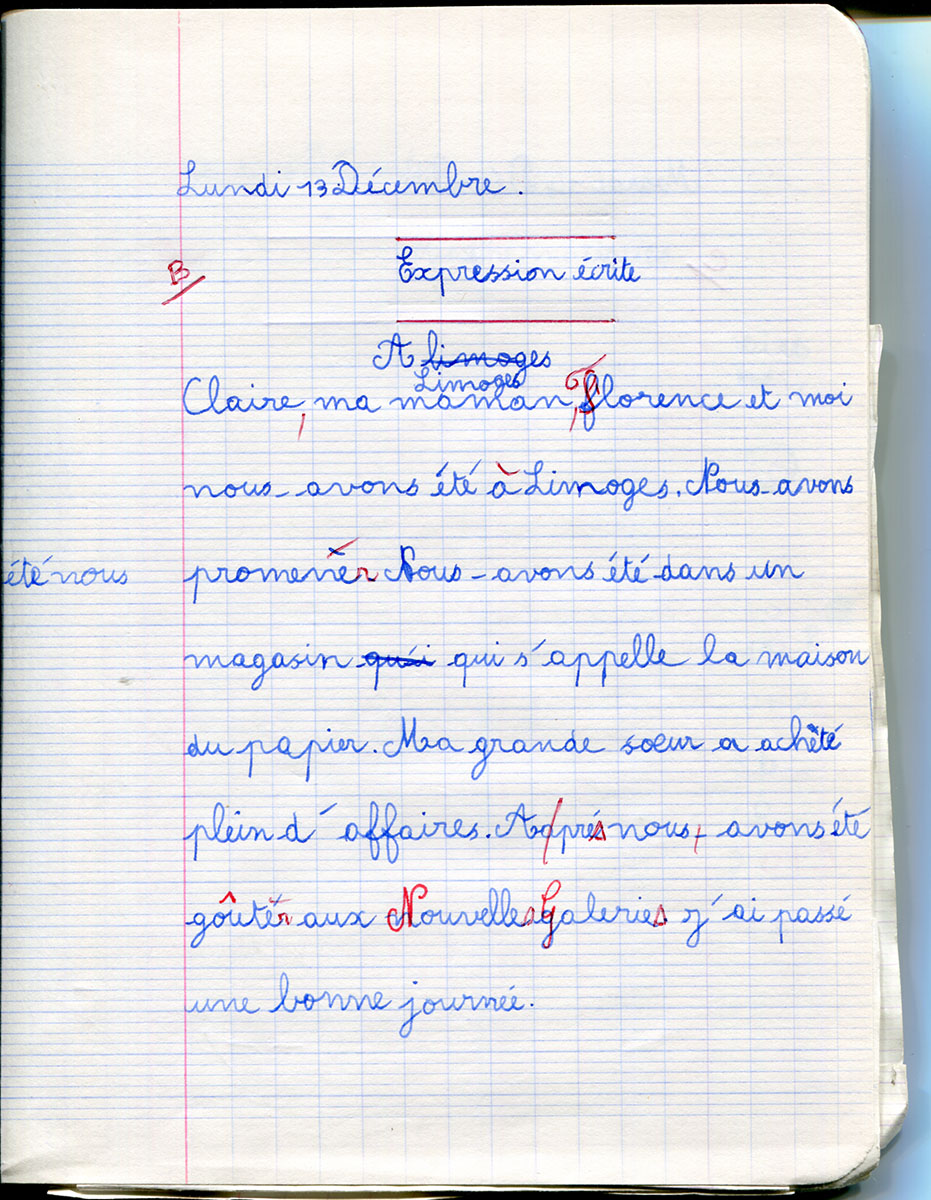 Lundi 13 Décembre.
B
Expression écrite
A limoges
Limoges
Claire, ma maman, Florence et moi
nous-avons été à Limoges. Nous-avons
été nous promener Nous-avons été dans un
magasin quái qui s'appelle la maison
du papier. Ma grande sœur a achèté
plein d'affaires. Après nous-avons été
goûter aux Nouvelles Galeries j'ai passé
une bonne journée.